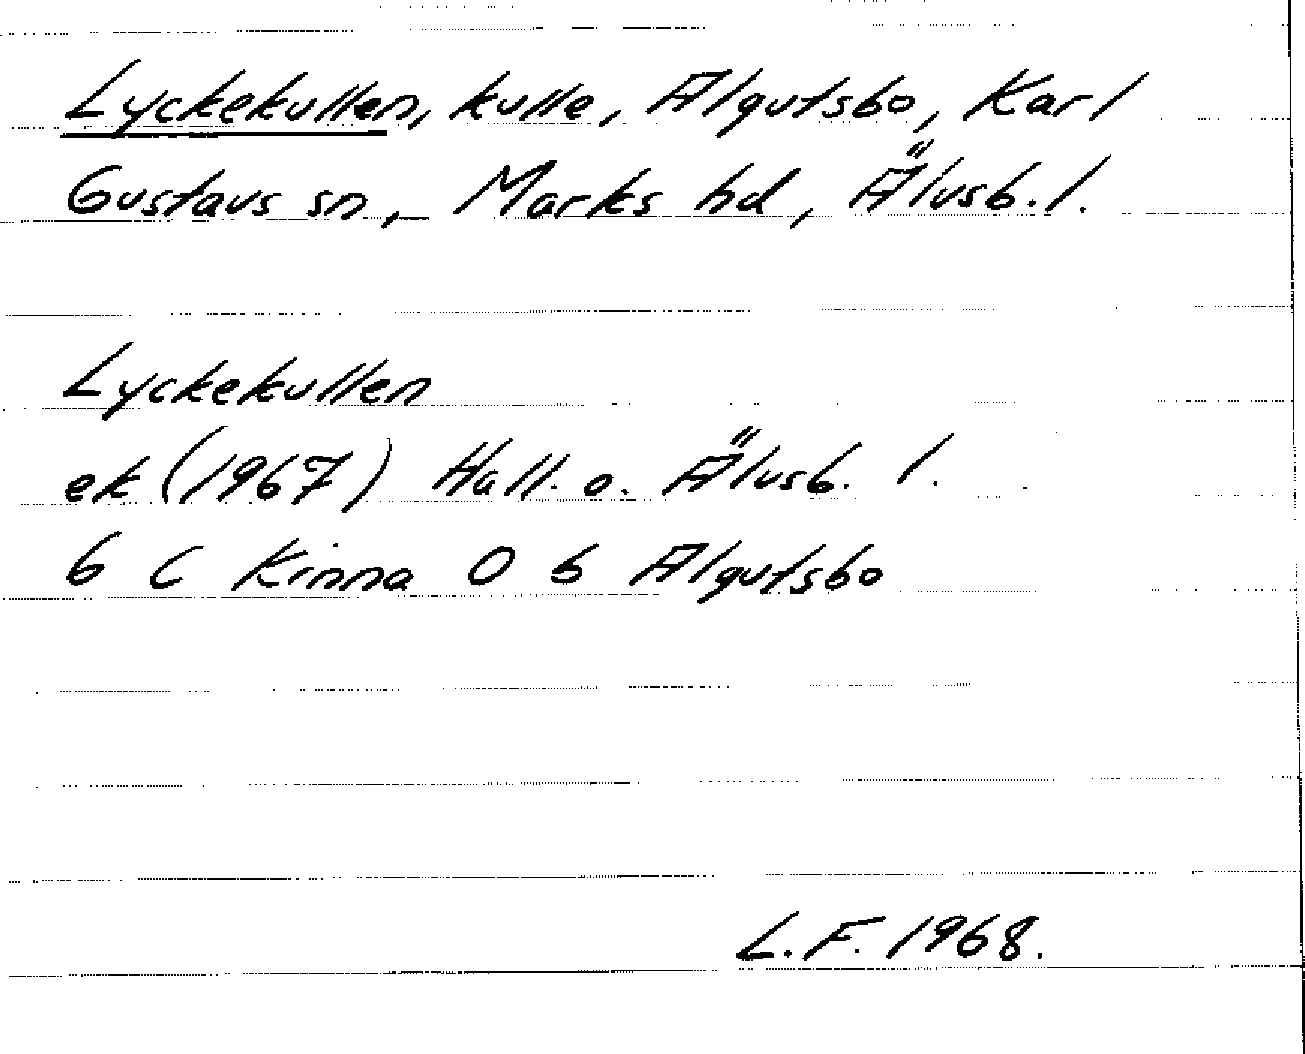 Lyckekullen, kulle, Algutsbo, Karl
Gustavs sn, Marks hd, Älvsb. l.
Lyckekullen
ek (1967) Hall. o. Älvsb. l.
6 C Kinna 0 b Algutsbo
L.F. 1968.